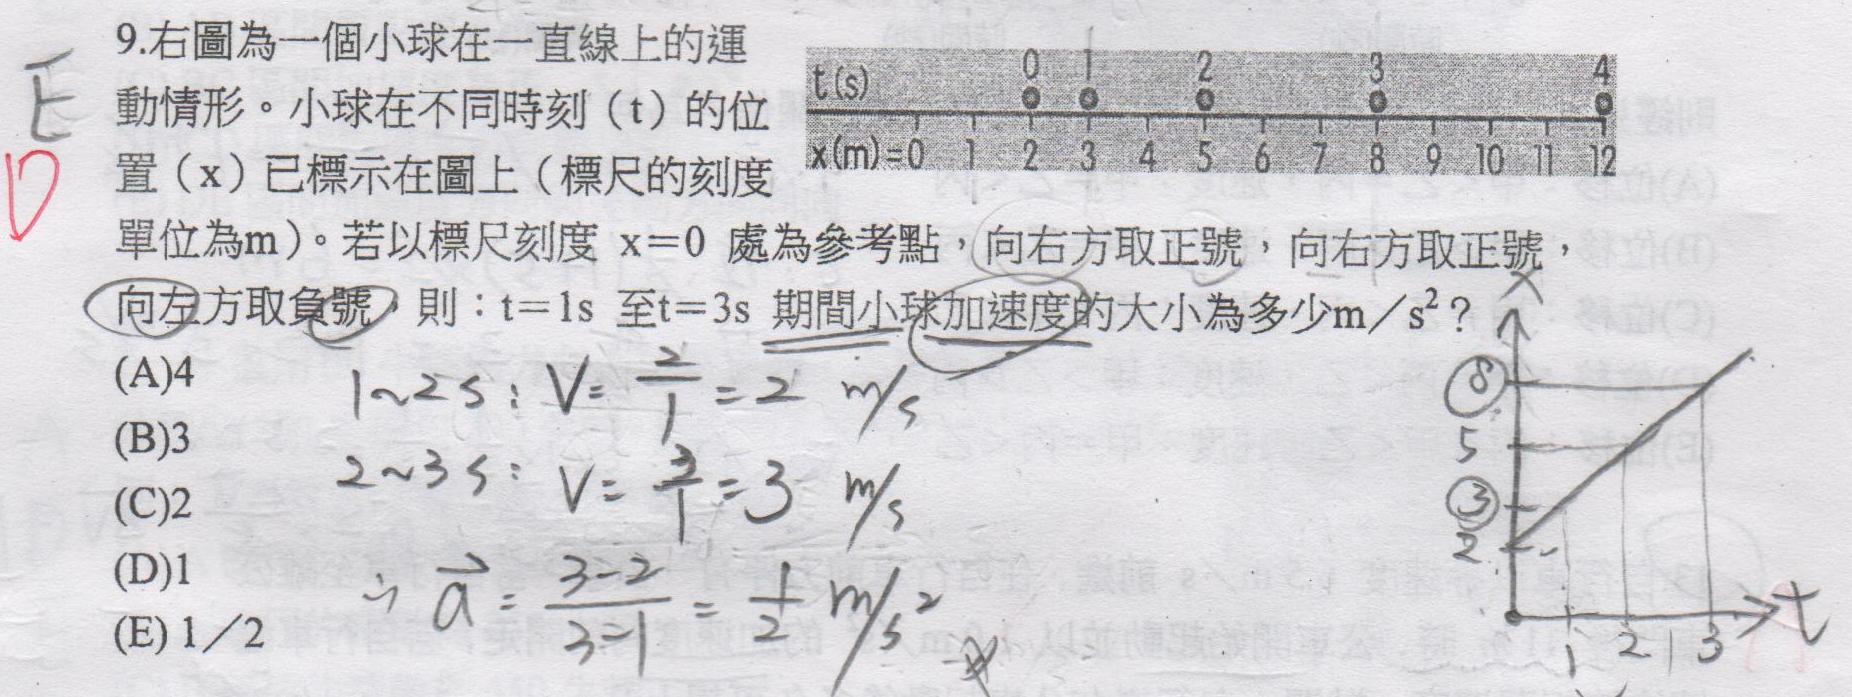 9.右圖為一個小球在一直線上的運
動情形。小球在不同時刻（t）的位
置（x）已標示在圖上（標尺的刻度
單位為m）。若以標尺刻度 x＝0 處為參考點，向右方取正號，向右方取正號，
向左方取負號，則：t＝1s 至t＝3s 期間小球加速度的大小為多少m／s²？
t(s) 0 1 2 3 4
x(m)=0 1 2 3 4 5 6 7 8 9 10 11 12
E
D
(A)4
(B)3
(C)2
(D)1
(E) 1／2
1~2 s: V= 2/1 = 2 m/s
2~3 s: V= 3/1 = 3 m/s
∴ a⃗ = 3-2/3-1 = 1/2 m/s²
x
8
5
3
2
1 2 3 t